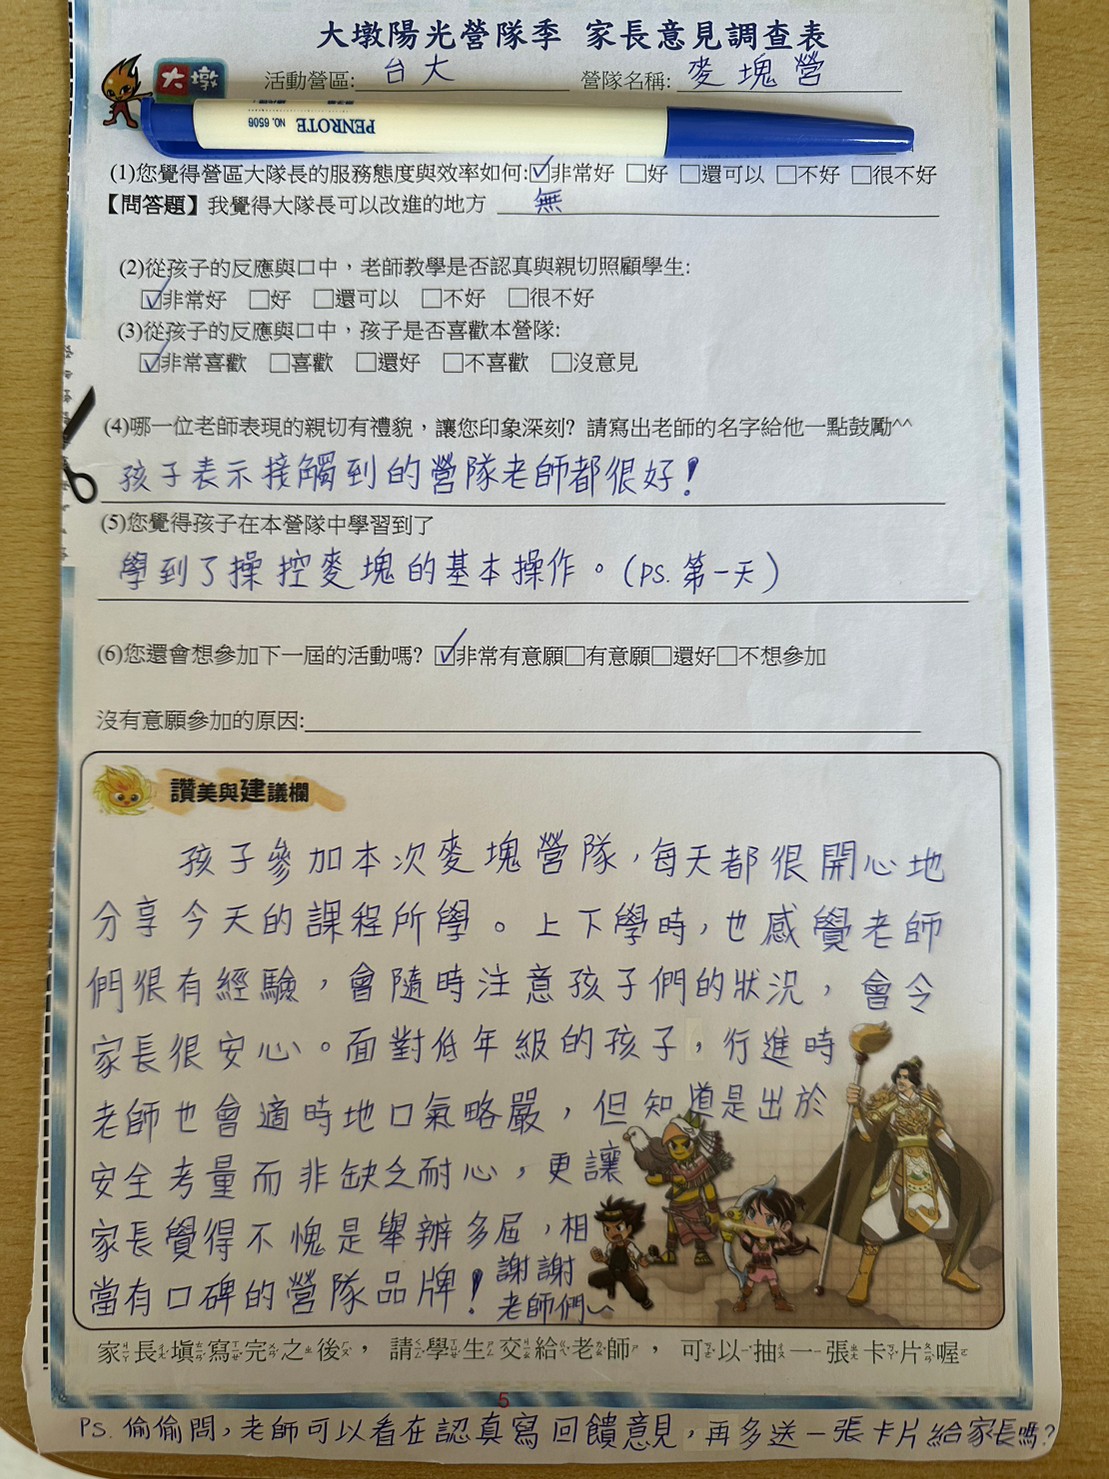 大墩陽光營隊季 家長意見調查表
大墩
活動營區: 台大 營隊名稱: 麥塊營
PENROTE NO. 6506
(1)您覺得營區大隊長的服務態度與效率如何:☑非常好 □好 □還可以 □不好 □很不好
【問答題】我覺得大隊長可以改進的地方 無
(2)從孩子的反應與口中，老師教學是否認真與親切照顧學生:
☑非常好 □好 □還可以 □不好 □很不好
(3)從孩子的反應與口中，孩子是否喜歡本營隊:
☑非常喜歡 □喜歡 □還好 □不喜歡 □沒意見
(4)哪一位老師表現的親切有禮貌，讓您印象深刻? 請寫出老師的名字給他一點鼓勵^^
孩子表示接觸到的營隊老師都很好！
(5)您覺得孩子在本營隊中學習到了
學到了操控麥塊的基本操作。(PS. 第一天)
(6)您還會想參加下一屆的活動嗎? ☑非常有意願□有意願□還好□不想參加
沒有意願參加的原因:
讚美與建議欄
孩子參加本次麥塊營隊，每天都很開心地
分享今天的課程所學。上下學時，也感覺老師
們很有經驗，會隨時注意孩子們的狀況，會令
家長很安心。面對低年級的孩子，行進時
老師也會適時地口氣略嚴，但知道是出於
安全考量而非缺乏耐心，更讓
家長覺得不愧是舉辦多屆，相
當有口碑的營隊品牌！謝謝
老師們~
家長填寫完之後，請學生交給老師，可以抽一張卡片喔
5
PS. 偷偷問，老師可以看在認真寫回饋意見，再多送一張卡片給家長嗎？